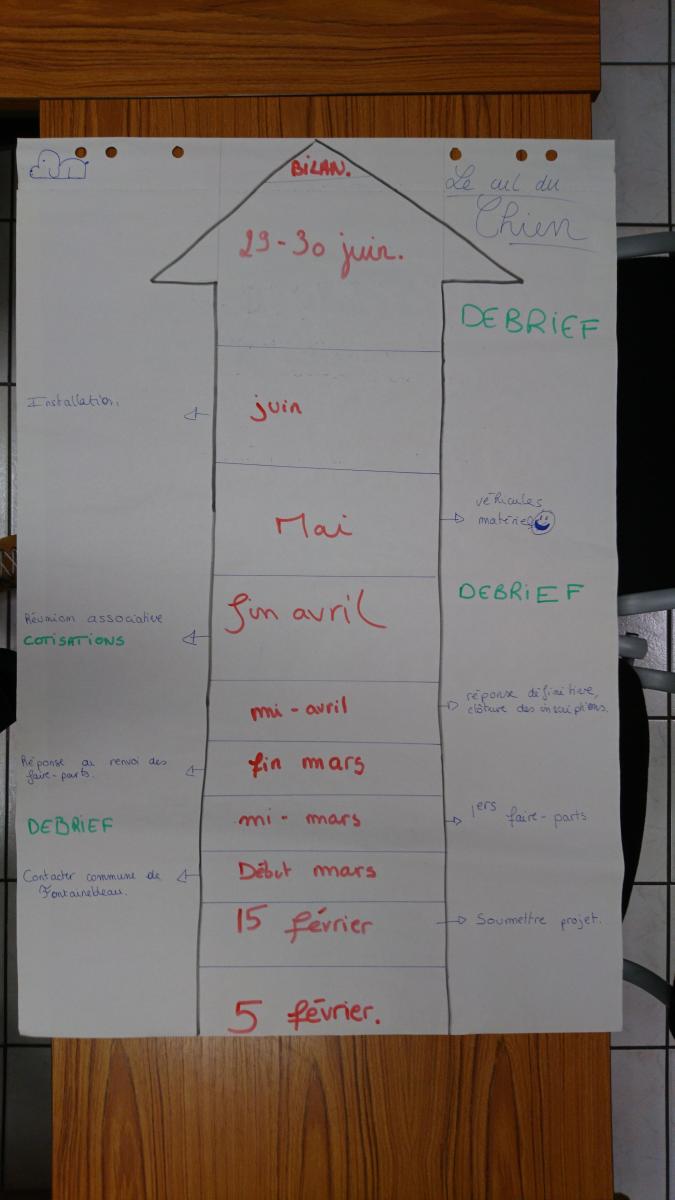 BILAN.
Le cul du
Chien
29-30 juin.
DEBRIEF
Installation.
juin
véhicules
matériel
Mai
DEBRIEF
fin avril
Réunion associative
COTISATIONS
mi-avril
réponse définitive,
clôture des inscriptions.
fin mars
Réponse au renvoi des
faire-parts.
mi-mars
1ers faire-parts
DEBRIEF
Début mars
Contacter commune de
Fontainebleau.
15 février
Soumettre projet.
5 février.